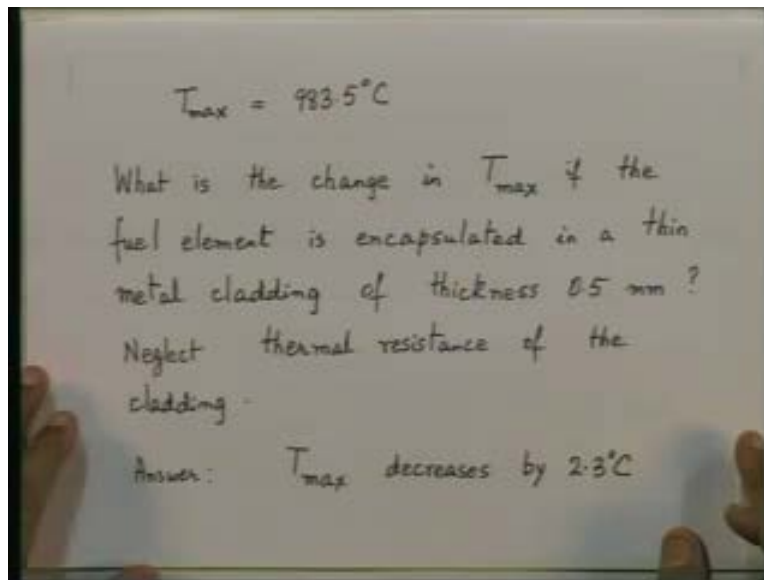 Tmax = 983.5°C
What is the change in Tmax if the
fuel element is encapsulated in a thin
metal cladding of thickness 0.5 mm ?
Neglect thermal resistance of the
cladding.
Answer: Tmax decreases by 2.3°C